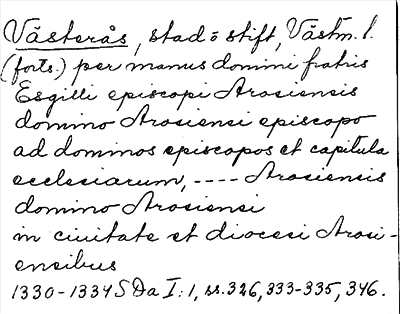 Västerås, stad o stift, Västm. l.
(forts.) per manus domini fratris
Esgilli episcopi Arosiensis
domino Arosiensi episcopo
ad dominos episcopos et capitula
ecclesiarum, ---- Arosiensis
domino Arosiensi
in ciuitate et diocesi Arosi-
ensibus
1330-1334 SDa I:1, ss. 326, 333-335, 346.